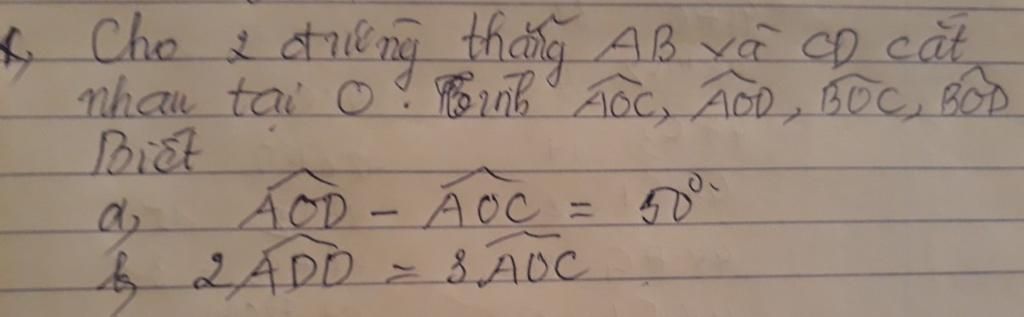 Cho 2 đường thẳng AB và CD cắt
nhau tại O. Tính AOC, AOD, BOC, BOD
Biết
a, AOD - AOC = 50°
b, 2 AOD = 3 AOC